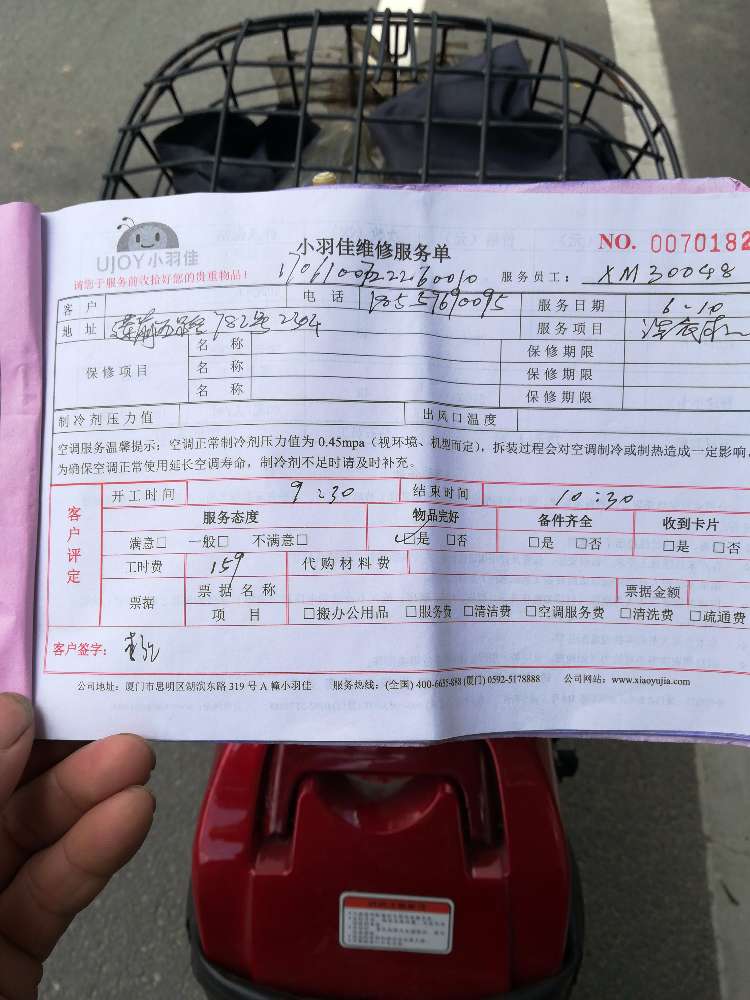 UJOY小羽佳
小羽佳维修服务单
NO. 0070182
请您于服务前收拾好您的贵重物品！
服务员工： XM30048
客 户
电 话
服务日期 6-10
地 址
782号2304
服务项目
保修项目
名 称
保修期限
名 称
保修期限
名 称
保修期限
制冷剂压力值
出风口温度
空调服务温馨提示：空调正常制冷剂压力值为 0.45mpa（视环境、机型而定），拆装过程会对空调制冷或制热造成一定影响，
为确保空调正常使用延长空调寿命，制冷剂不足时请及时补充。
客户评定
开工时间 9:30 结束时间 10:30
服务态度 物品完好 备件齐全 收到卡片
满意□ 一般□ 不满意□ □是 □否 □是 □否 □是 □否
工时费 159 代购材料费
票据 票据名称 票据金额
项 目 □搬办公用品 □服务费 □清洁费 □空调服务费 □清洗费 □疏通费
客户签字：
公司地址：厦门市思明区湖滨东路 319 号 A 幢小羽佳 服务热线：(全国) 400-6655-888 (厦门) 0592-5178888 公司网站：www.xiaoyujia.com